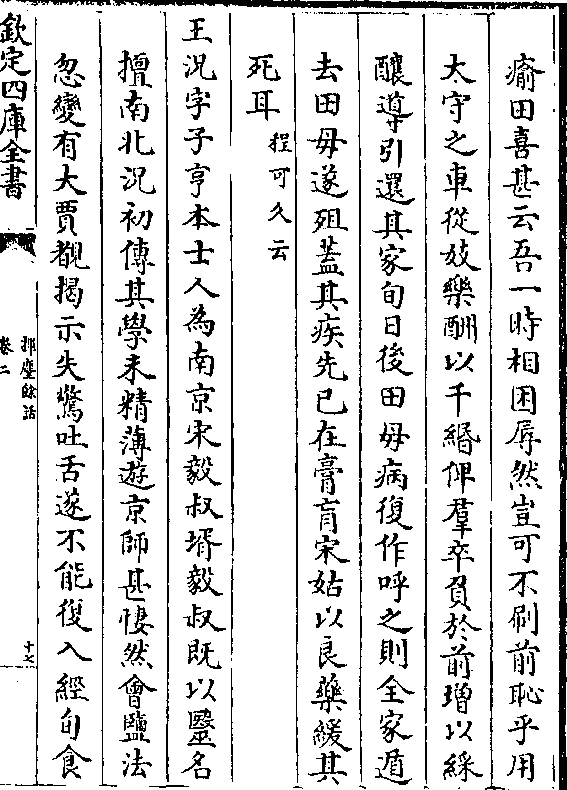 瘉田喜甚云吾一時相困辱然豈可不刷前恥乎用
大守之車從妓樂酬以千緡俾羣卒負於前增以綵
釀導引還其家旬日後田毋病復作呼之則全家遁
去田毋遂殂蓋其疾先已在膏肓宋姑以良藥緩其
死耳程可久云
王況字子亨本士人為南京宋毅叔壻毅叔既以毉名
擅南北況初傳其學未精薄遊京師甚悽然會鹽法
忽變有大賈覩揭示失驚吐舌遂不能復入經旬食
欽定四庫全書
揮麈餘話
卷二
十七